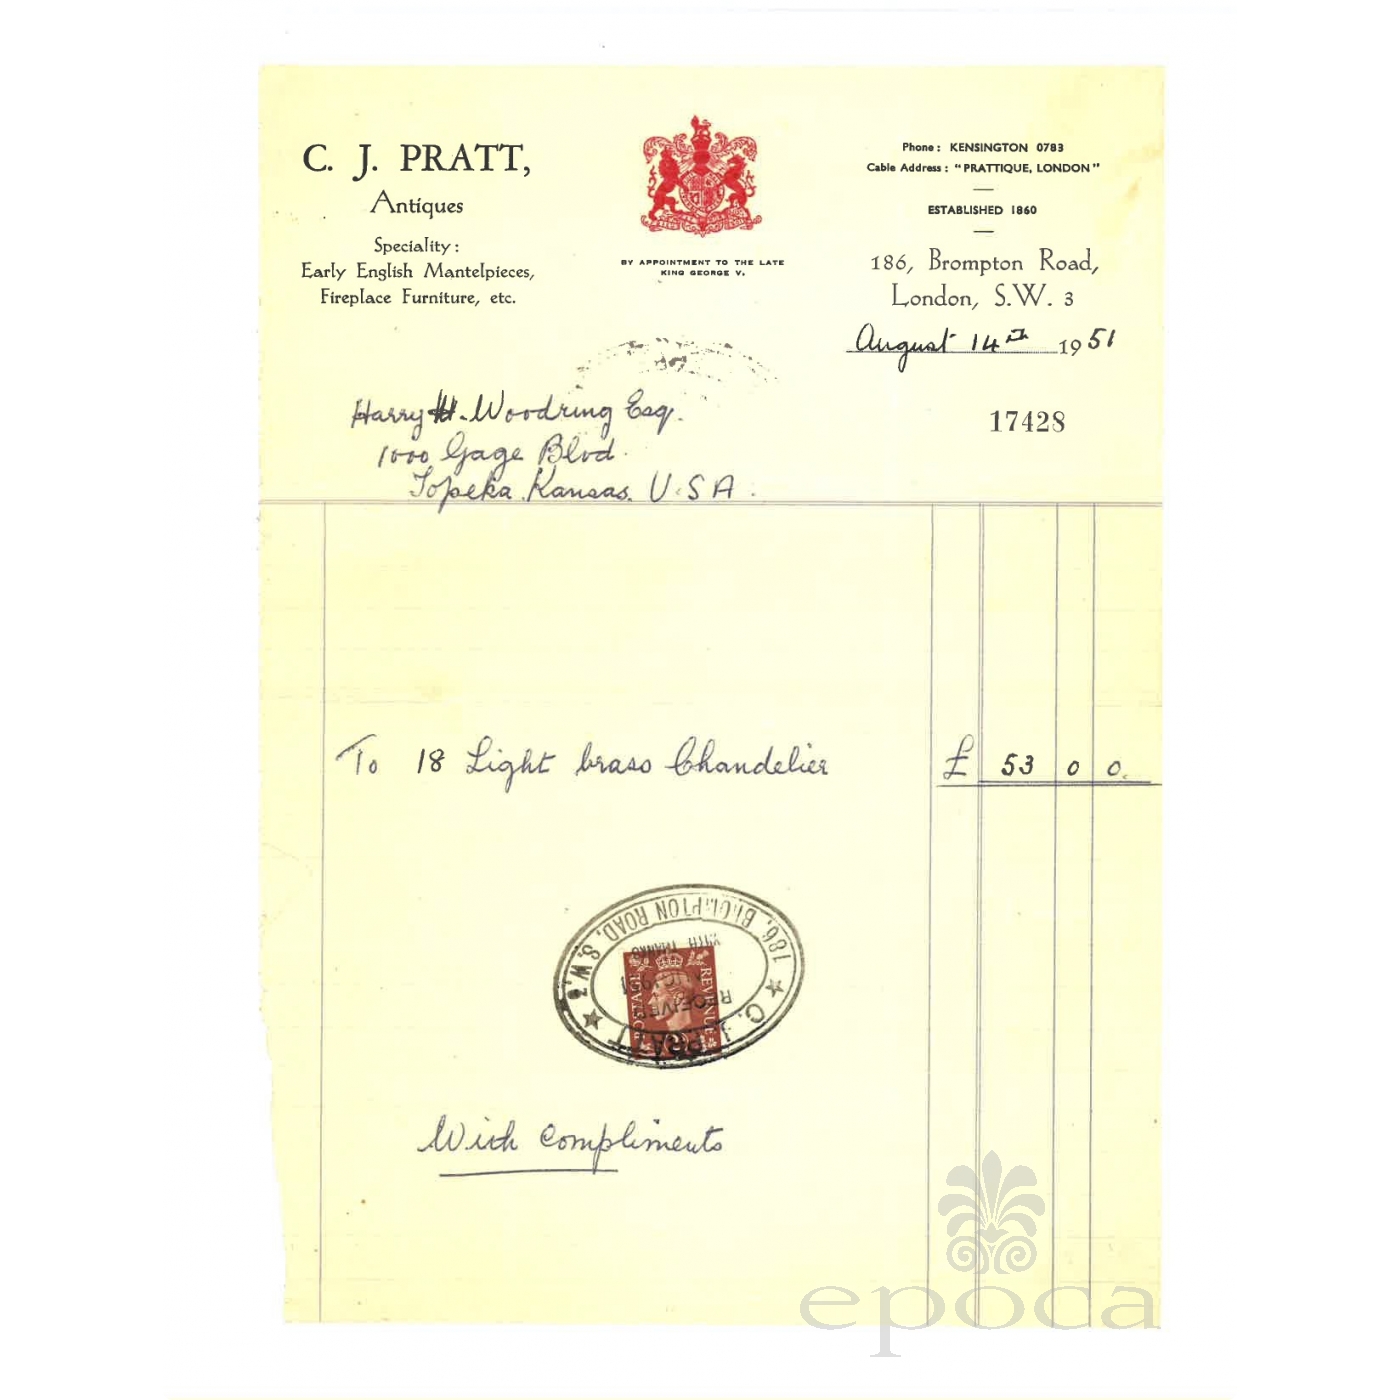 C. J. PRATT,
Antiques
Speciality :
Early English Mantelpieces,
Fireplace Furniture, etc.
BY APPOINTMENT TO THE LATE
KING GEORGE V.
Phone : KENSINGTON 0783
Cable Address : "PRATTIQUE, LONDON"
ESTABLISHED 1860
186, Brompton Road,
London, S.W. 3
August 14th 1951
17428
Harry H. Woodring Esq.
1000 Gage Blvd.
Topeka. Kansas. U.S.A.
To 18 Light brass Chandelier £ 53 0 0.
186, BROMPTON ROAD, S.W.3
WITH THANKS
AUG 1951
RECEIVED
C. J. PRATT
POSTAGE REVENUE
With compliments
epoca